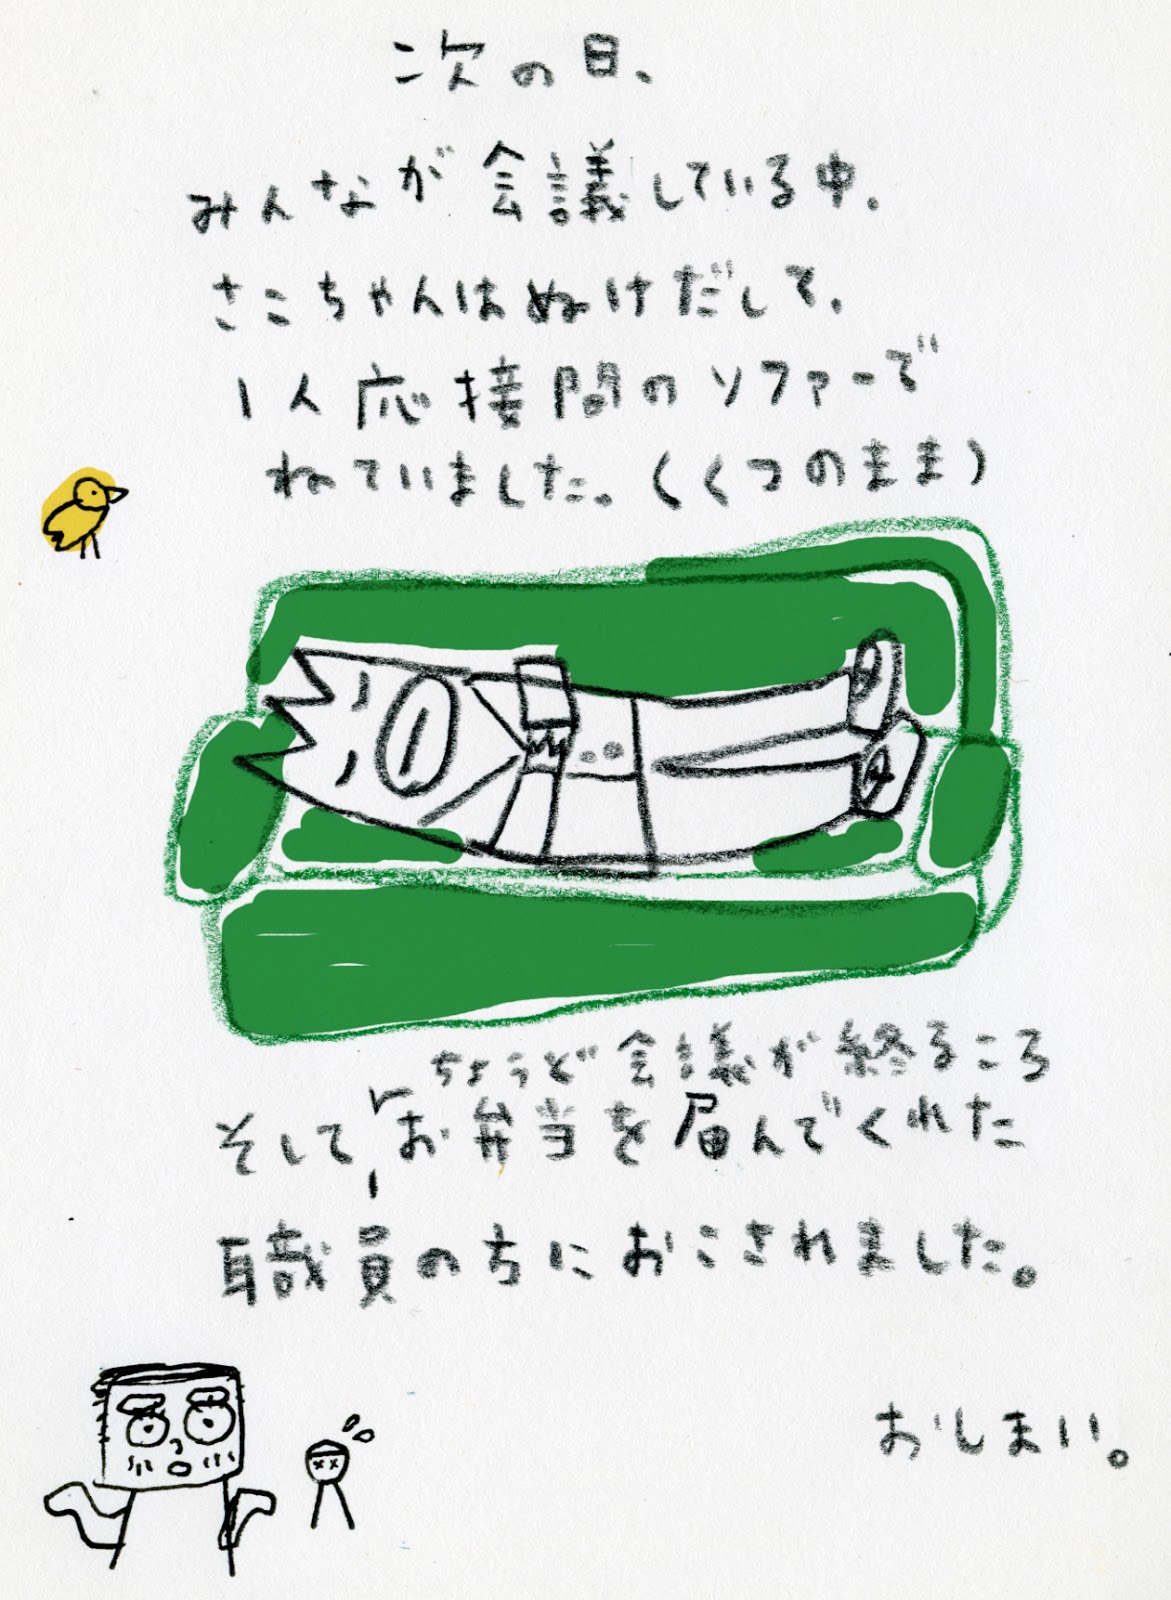 次の日、
みんなが会議している中、
さこちゃんはぬけだして、
1人応接間のソファーで
ねていました。(くつのまま)
ちょうど会議が終るころ
そしてお弁当を届んでくれた
職員の方におこされました。
おしまい。